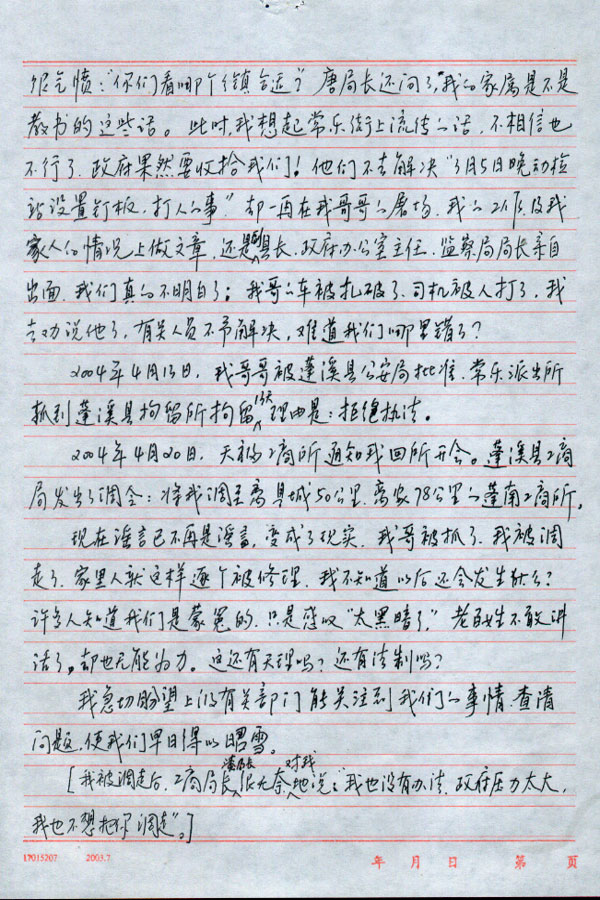 很气愤："你们看哪个镇合适？"唐局长还问了，"我的家属是不是
教书的"这些话。此时，我想起常乐街上流传的话，不相信也
不行了，政府果然要收拾我们！他们不去解决"3月5日晚动检
站设置钉板，打人的事"却一再在我哥哥的屠场，我的工作及我
家人的情况上做文章，还是副县长、政府办公室主任、监察局局长亲自
出面，我们真的不明白了；我哥的车被扎破了，司机被人打了，我
去劝说他了，有关人员不予解决，难道我们哪里错了？
2004年4月13日，我哥哥被蓬溪县公安局批准，常乐派出所
抓到蓬溪县拘留所拘留13天，理由是：拒绝执法。
2004年4月20日，天福工商所通知我回所开会。蓬溪县工商
局发出了调令：将我调至离县城50公里，离家78公里的蓬南工商所。
现在谣言已不再是谣言，变成了现实，我哥被抓了，我被调
走了，家里人就这样逐个被修理，我不知道以后还会发生什么？
许多人知道我们是蒙冤的，只是感叹"太黑暗了"，老百姓不敢讲
话了，却也无能为力。这还有天理吗？还有法制吗？
我急切盼望上级有关部门能关注到我们的事情，查清
问题，使我们早日得以昭雪。
[我被调走后，工商局长潘局长很无奈地对我说："我也没有办法，政府压力太大，
我也不想把你调走"。]
17015207 2003.7 年 月 日 第 页